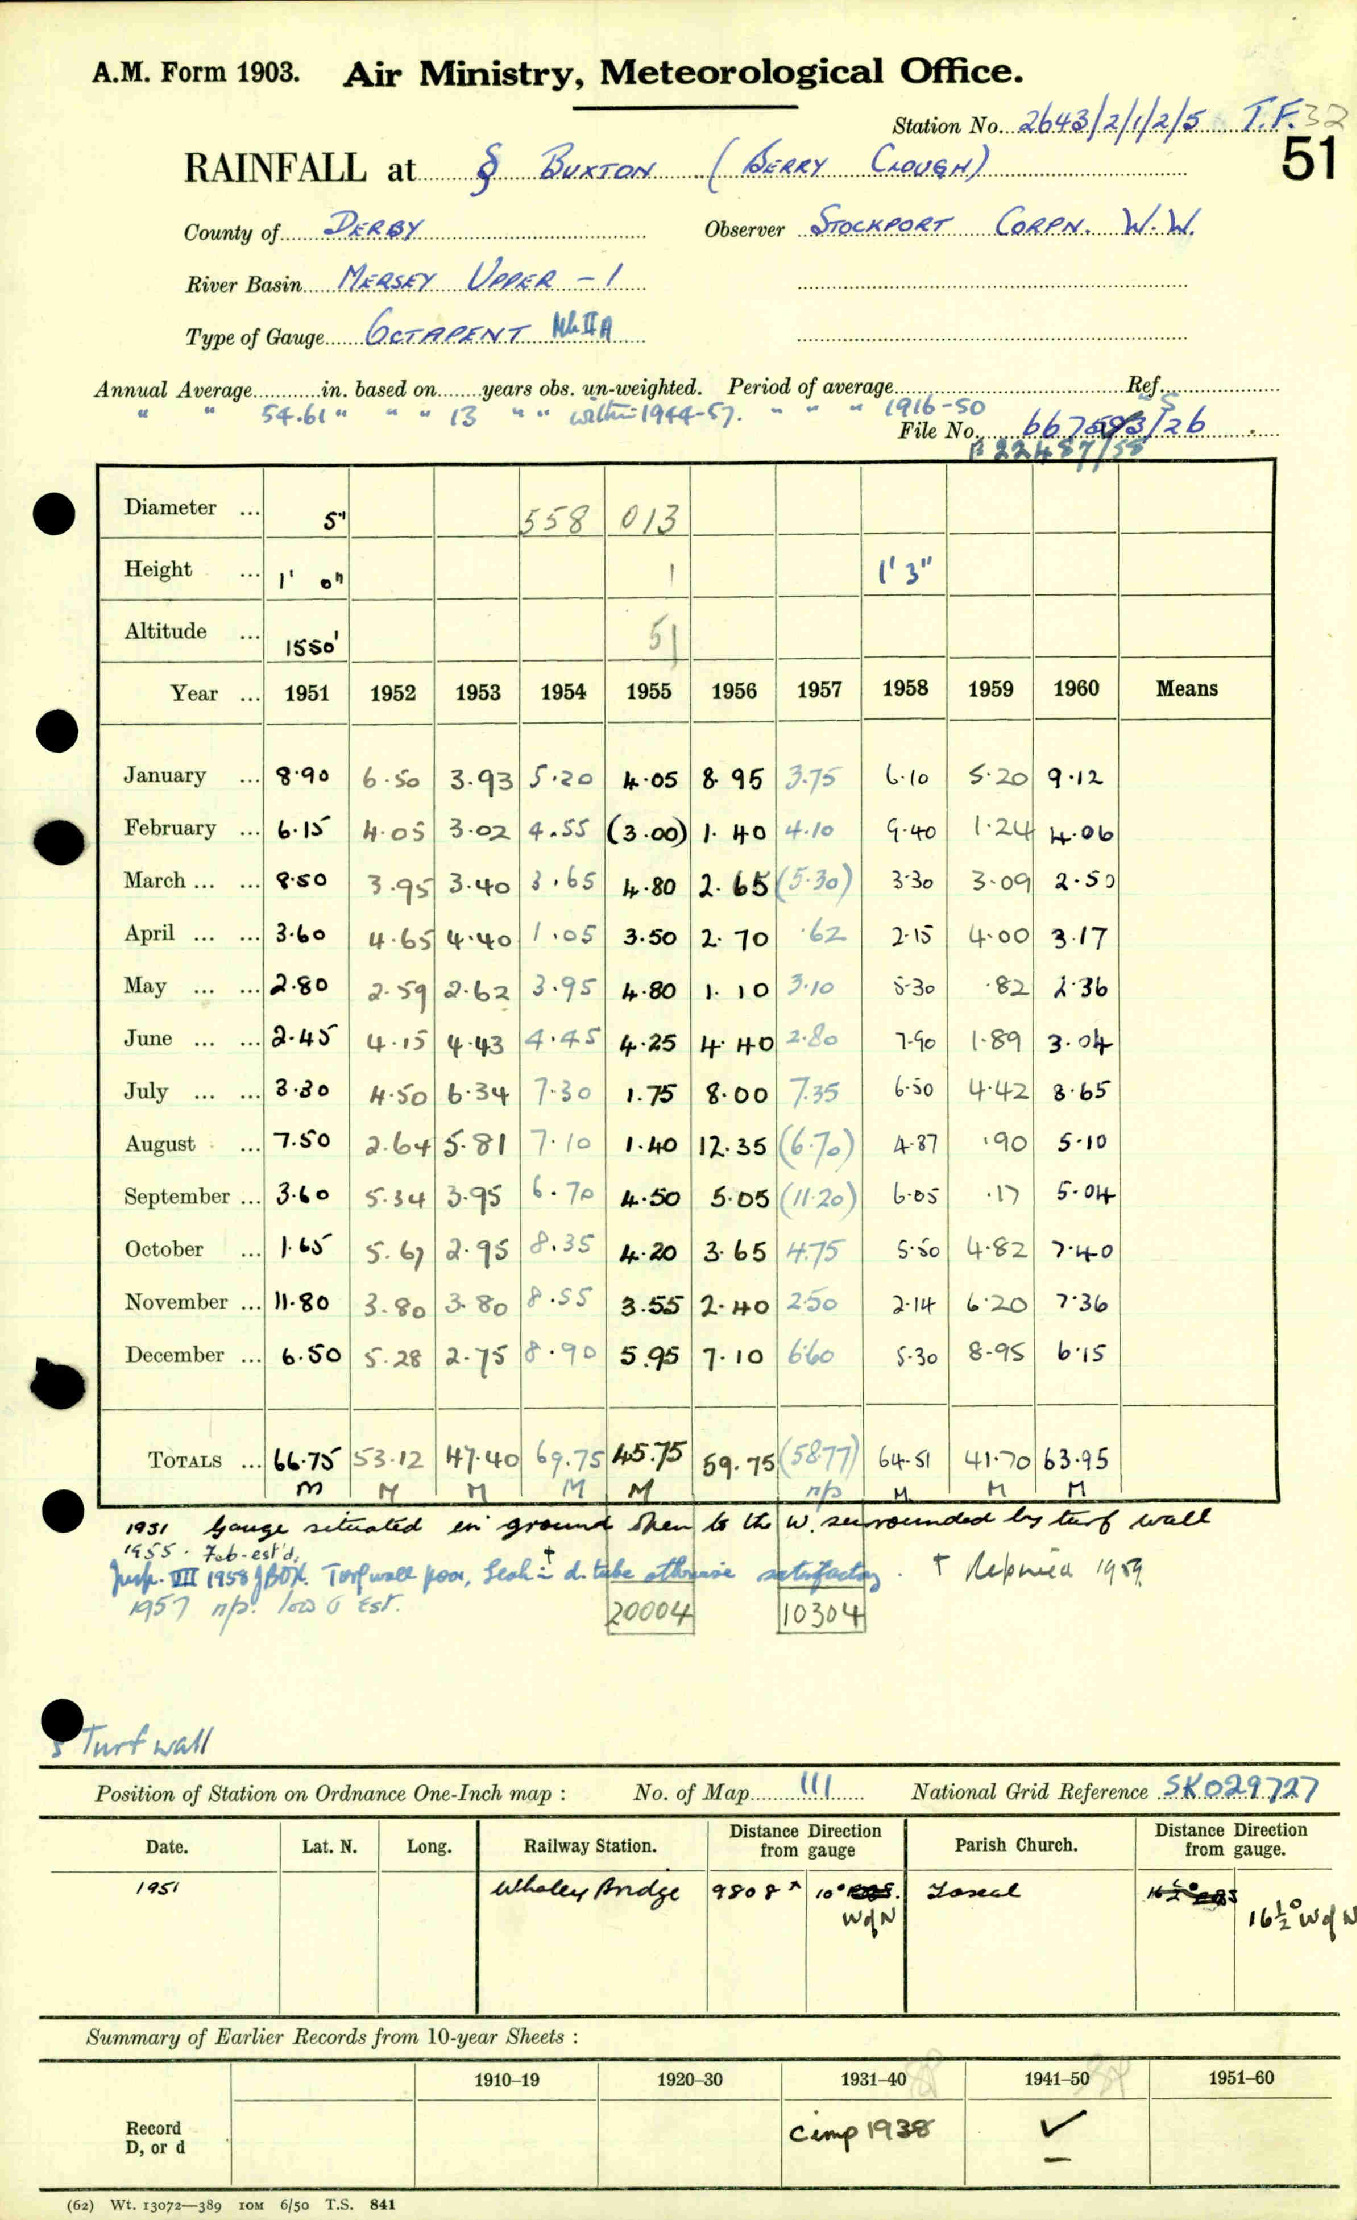 A.M. Form 1903. Air Ministry, Meteorological Office.
Station No. 2643/2/1/2/5 T.F. 32
RAINFALL at § BUXTON (BERRY CLOUGH) 51
County of DERBY Observer STOCKPORT CORPN. W.W.
River Basin MERSEY UPPER - 1
Type of Gauge OCTAPENT Mk II A
Annual Average in. based on years obs. un-weighted. Period of average Ref.
" " 54.61 " " " 13 " " within 1944-57. " " " 1916-50 " S
File No. /26
22487/58
Diameter ... 5" 558 013
Height ... 1' 0" 1 1'3"
Altitude ... 1550' 51
Year ... 1951 1952 1953 1954 1955 1956 1957 1958 1959 1960 Means
January ... 8.90 6.50 3.93 5.20 4.05 8.95 3.75 6.10 5.20 9.12
February ... 6.15 4.05 3.02 4.55 (3.00) 1.40 4.10 9.40 1.24 4.06
March ... ... 8.50 3.95 3.40 3.65 4.80 2.65 (5.30) 3.30 3.09 2.50
April ... ... 3.60 4.65 4.40 1.05 3.50 2.70 .62 2.15 4.00 3.17
May ... ... 2.80 2.59 2.62 3.95 4.80 1.10 3.10 5.30 .82 2.36
June ... ... 2.45 4.15 4.43 4.45 4.25 4.40 2.80 7.90 1.89 3.04
July ... ... 3.30 4.50 6.34 7.30 1.75 8.00 7.35 6.50 4.42 8.65
August ... 7.50 2.64 5.81 7.10 1.40 12.35 (6.70) 4.87 .90 5.10
September ... 3.60 5.34 3.95 6.70 4.50 5.05 (11.20) 6.05 .17 5.04
October ... 1.65 5.67 2.95 8.35 4.20 3.65 4.75 5.50 4.82 7.40
November ... 11.80 3.80 3.80 8.55 3.55 2.40 2.50 2.14 6.20 7.36
December ... 6.50 5.28 2.75 8.90 5.95 7.10 6.60 5.30 8.95 6.15
TOTALS ... 66.75 53.12 47.40 69.75 45.75 59.75 (58.77) 64.51 41.70 63.95
M M M M M n/p M M M
1951 Gauge situated in ground open to the W. surrounded by turf wall
1955. Feb. est'd.
Insp. VIII 1958 JBDX. Turf wall poor, Leak in d. tube † otherwise satisfactory. † Repaired 1959
1957 n/p. low & Est.
20004 10304
§ Turf wall
Position of Station on Ordnance One-Inch map : No. of Map 111 National Grid Reference SK029727
Date. Lat. N. Long. Railway Station. Distance Direction from gauge Parish Church. Distance Direction from gauge.
1951 Whaley Bridge 9808 x 10° W of N Taxal 16½° W of N
Summary of Earlier Records from 10-year Sheets :
1910–19 1920–30 1931–40 1941–50 1951–60
Record
D, or d
Cimp 1938 ✓
(62) Wt. 13072—389 10M 6/50 T.S. 841